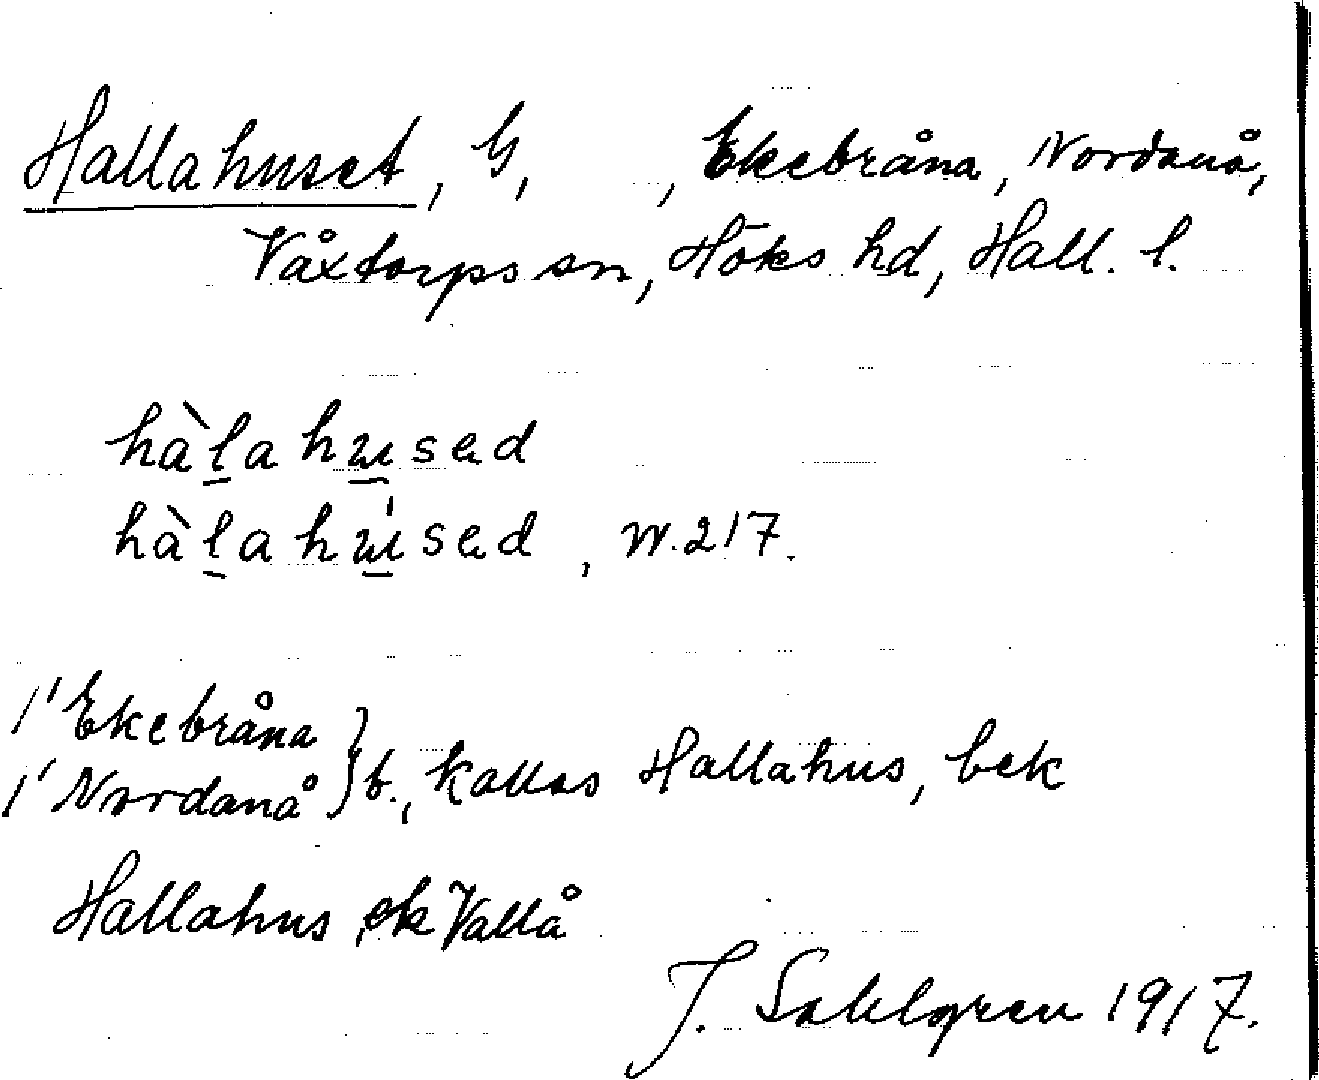 Hallahuset, G, , Ekebråna, Nordanå,
Våxtorps sn, Höks hd, Hall. l.
hàlahused
hàlahu̍sed , M.217.
1/1 Ekebråna
1/1 Nordanå } b., kallas Hallahus, bek
Hallahus, ek Vallå
J. Sahlgren 1917.